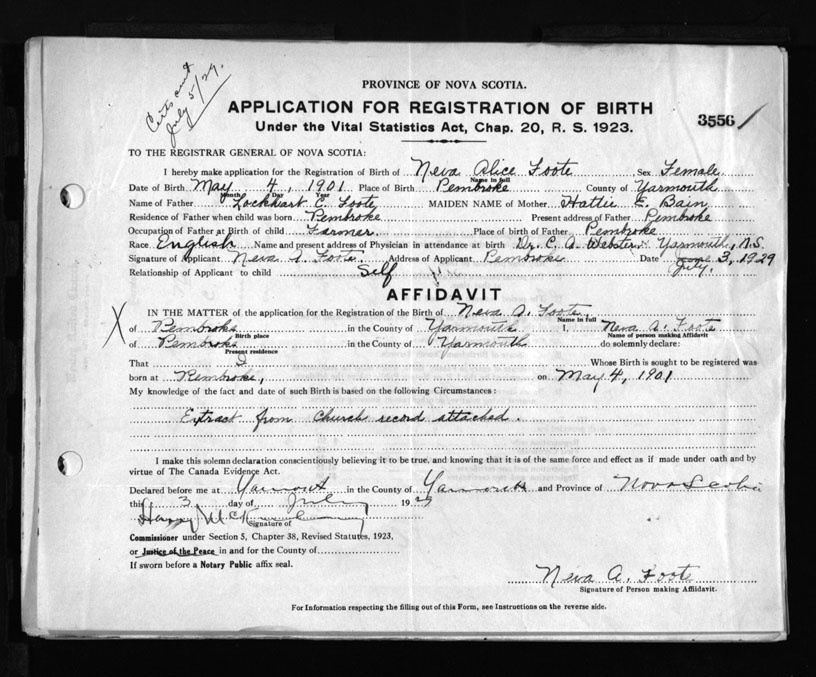 Certs and
July 5/29.
PROVINCE OF NOVA SCOTIA.
APPLICATION FOR REGISTRATION OF BIRTH
3556
Under the Vital Statistics Act, Chap. 20, R. S. 1923.
TO THE REGISTRAR GENERAL OF NOVA SCOTIA:
I hereby make application for the Registration of Birth of Neva Alice Foote Sex Female
Name in full
Date of Birth May 4, 1901 Place of Birth Pembroke County of Yarmouth
Month Day Year
Name of Father Lockhart E. Foote MAIDEN NAME of Mother Hattie E. Bain
Residence of Father when child was born Pembroke Present address of Father Pembroke
Occupation of Father at Birth of child Farmer. Place of birth of Father Pembroke
Race English Name and present address of Physician in attendance at birth Dr. C. A. Webster, Yarmouth, N.S.
Signature of Applicant Neva A. Foote. Address of Applicant Pembroke Date July, 3, 1929
Relationship of Applicant to child Self
AFFIDAVIT
X IN THE MATTER of the application for the Registration of the Birth of Neva A. Foote,
Name in full
of Pembroke in the County of Yarmouth I, Neva A. Foote
Birth place Name of person making Affidavit
of Pembroke in the County of Yarmouth do solemnly declare:
Present residence
That I Whose Birth is sought to be registered was
born at Pembroke, on May 4, 1901
My knowledge of the fact and date of such Birth is based on the following Circumstances:
Extract from Church record attached.
I make this solemn declaration conscientiously believing it to be true, and knowing that it is of the same force and effect as if made under oath and by
virtue of The Canada Evidence Act.
Declared before me at Yarmouth in the County of Yarmouth and Province of Nova Scotia
this 3 day of July 1929
Harry
Signature of
Commissioner under Section 5, Chapter 38, Revised Statutes, 1923,
or Justice of the Peace in and for the County of
If sworn before a Notary Public affix seal.
Neva A. Foote
Signature of Person making Affidavit.
For Information respecting the filling out of this Form, see Instructions on the reverse side.